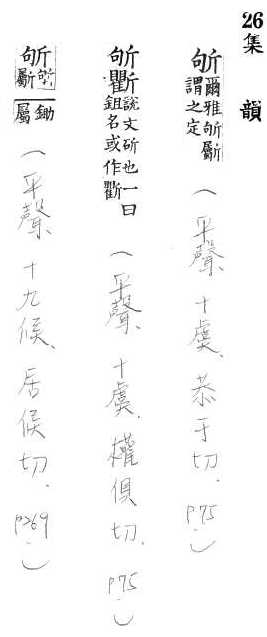 26集 韻
斪 爾雅斪斸謂之定 (平聲、十虞、恭于切. P75)
斪 說文斫也一曰鉏名或作 (平聲、十虞、權俱切. P75)
斪 斪斸鋤屬 (平聲、十九候、居候切. P269)